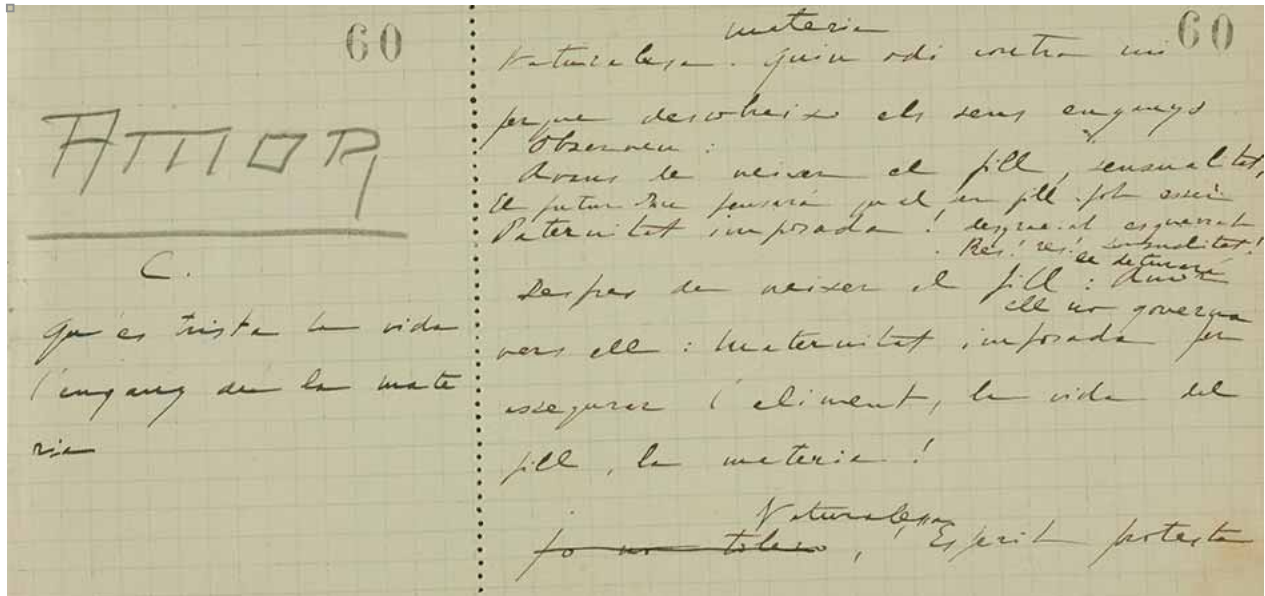 60
AMOR
C.
Qu'es trista la vida
l'engany de la mate
ria
60
materia
Naturalesa. quin odi contra mi
perque descobreixo els seus enganys
Observeu:
Avans de neixer el fill, sensualitat,
El futur Pare pensará qu'el seu fill pot esser
Paternitat imposada! desgraciat esguerrat
Res! res! sensualitat!
se deturará
Despres de neixer el fill: Amor
ell no governa
vers ell: Maternitat imposada per
assegurar l'aliment, la vida del
fill, la materia!
Naturalesa
jo no tolero, Esperit protesta